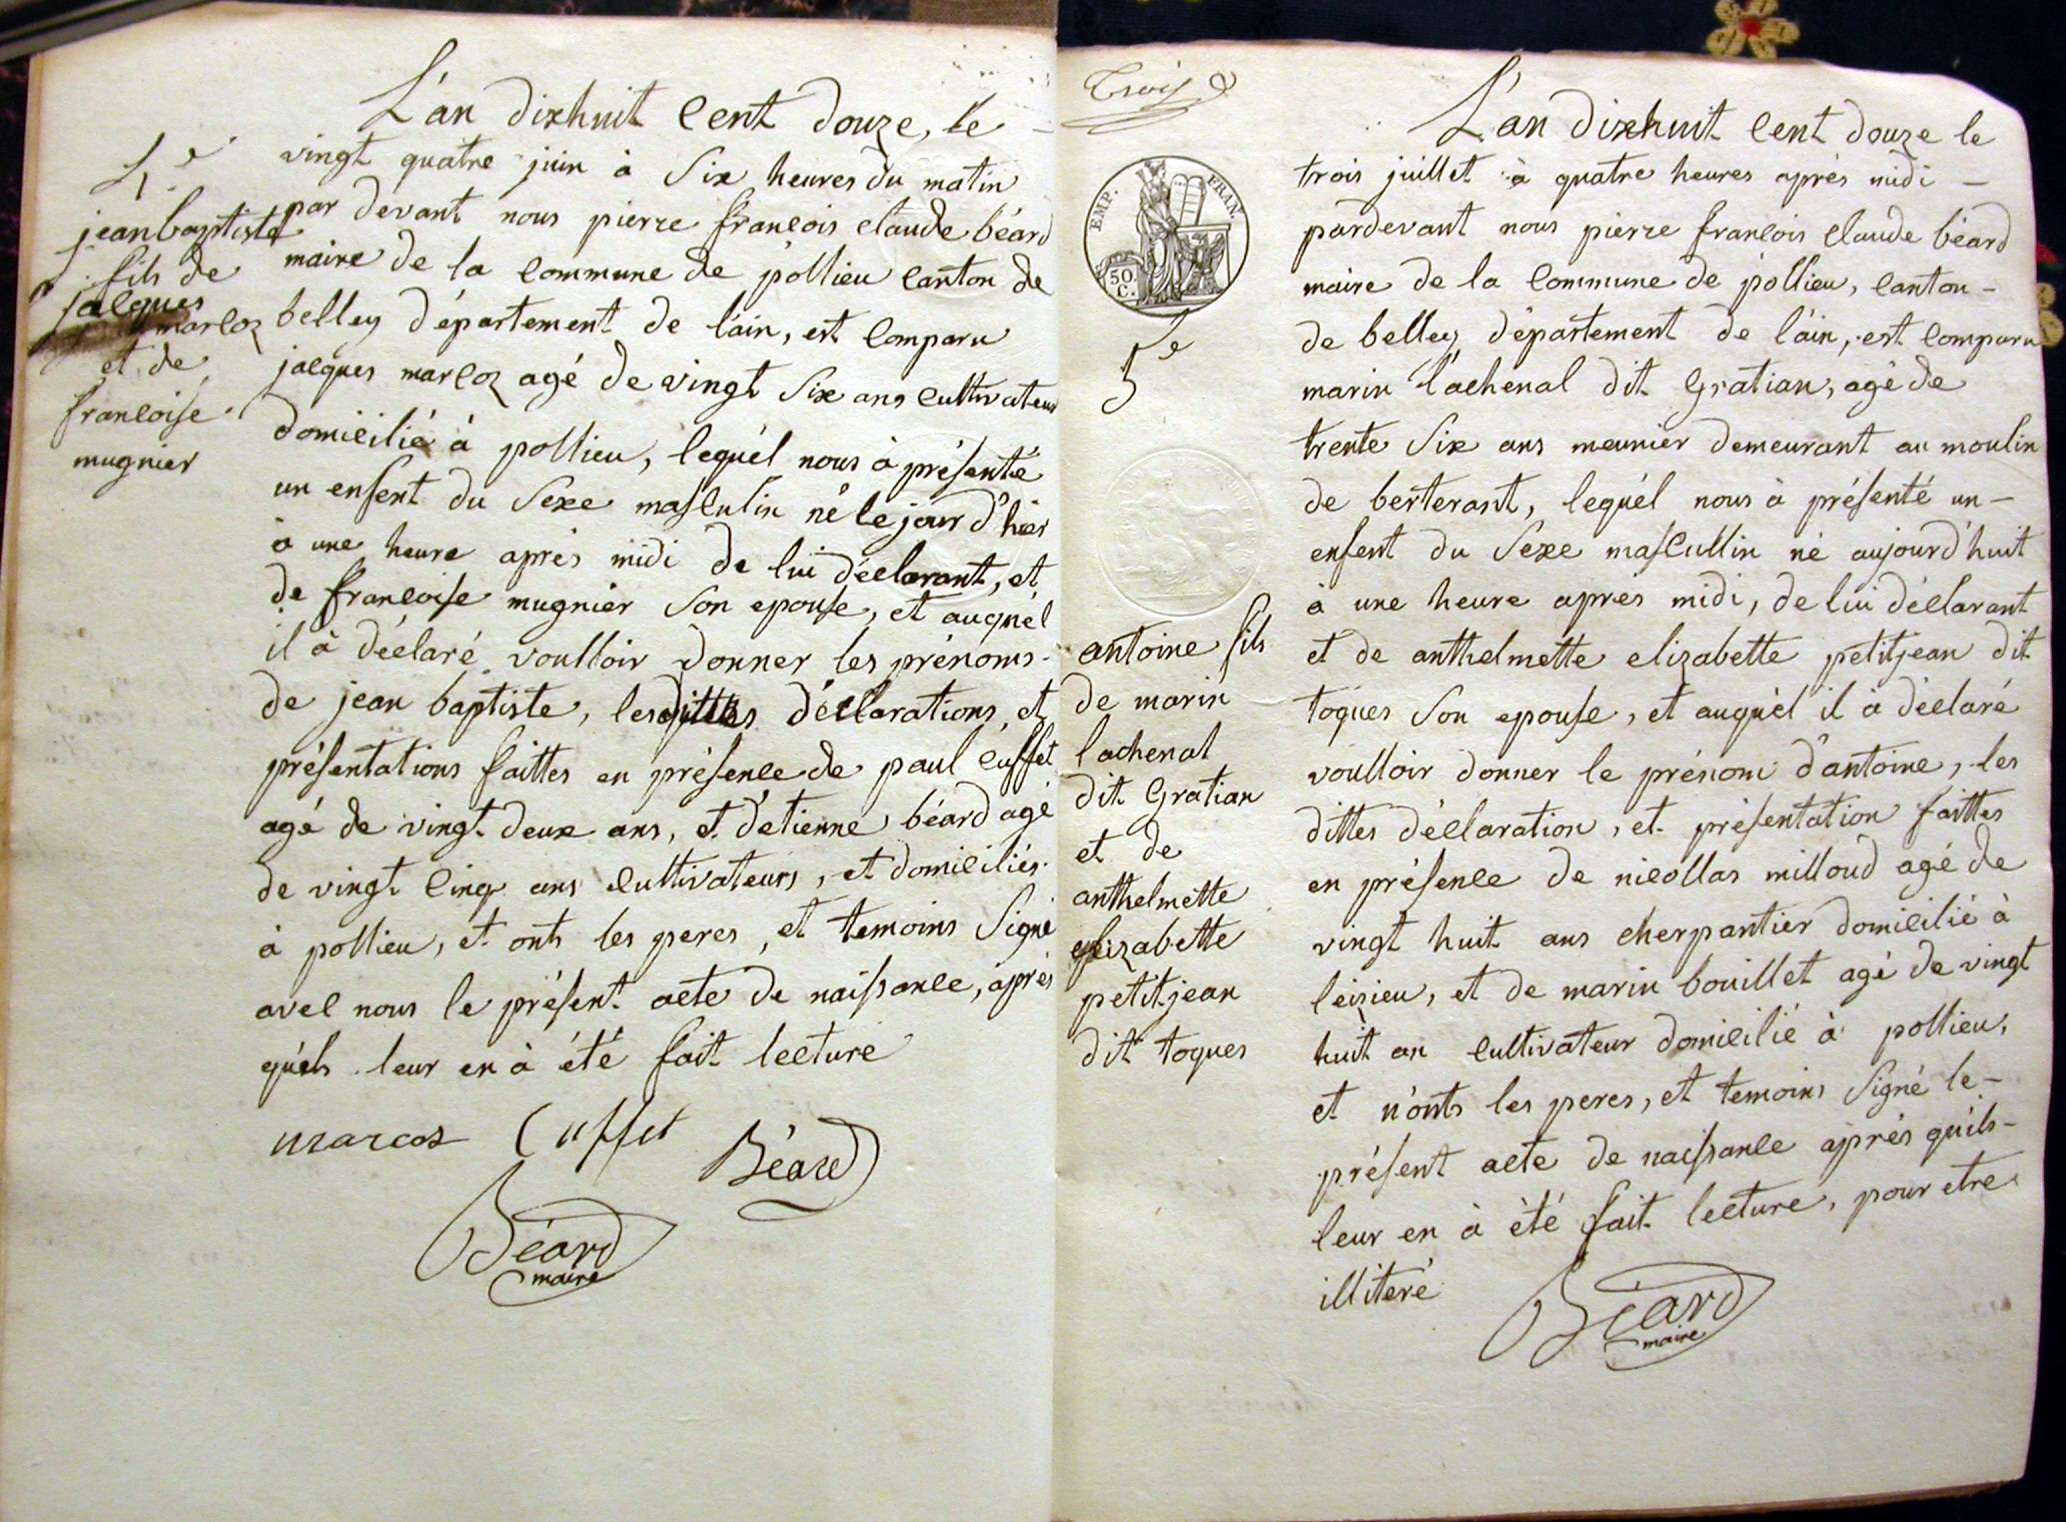 4e
jean baptiste
fils de
jacques
marcoz
et de
francoise
mugnier
L'an dixhuit cent douze, le
vingt quatre juin à six heures du matin
par devant nous pierre francois claude béard
maire de la commune de pollieu canton de
belley département de l'ain, est comparu
jacques marcoz agé de vingt six ans cultivateur
domicilié à pollieu, lequél nous à présenté
un enfent du sexe masculin né le jour d'hier
à une heure après midi de lui déclarant, et
de francoise mugnier son epouse, et auquél
il à déclaré voulloir donner les prénoms
de jean baptiste, lesdittes déclarations, et
présentations faittes en présence de paul cuffet
agé de vingt deux ans, et d'etienne béard agé
de vingt cinq ans cultivateurs, et domiciliés
à pollieu, et onts les peres, et temoins signé
avec nous le présent acte de naissance, après
qúels leur en à été fait lecture
marcos Cuffet Béard
Béard
maire
Trois
EMP. FRAN.
50 C.
5e
antoine fils
de marin
lachenal
dit Gratian
et de
anthelmette
elizabette
petitjean
dit toques
L'an dixhuit cent douze le
trois juillet à quatre heures après midi -
pardevant nous pierre francois claude béard
maire de la commune de pollieu, canton -
de belley département de l'ain, est comparu
marin lachenal dit Gratian, agé de
trente six ans meunier demeurant au moulin
de berterant, lequél nous à présenté un -
enfent du sexe mascullin né aujourd'huit
à une heure après midi, de lui déclarant
et de anthelmette elizabette petitjean dit
toques son epouse, et auquèl il à déclaré
voulloir donner le prénom d'antoine, les
dittes déclaration, et présentation faittes
en présence de nicollas milloud agé de
vingt huit ans cherpantier domicilié à
leizieu, et de marin bouillet agé de vingt
huit an cultivateur domicilié à pollieu,
et n'onts les peres, et temoins signé le -
présent acte de naissance après qu'ils -
leur en à èté fait lecture, pour etre
illiteré
Béard
maire